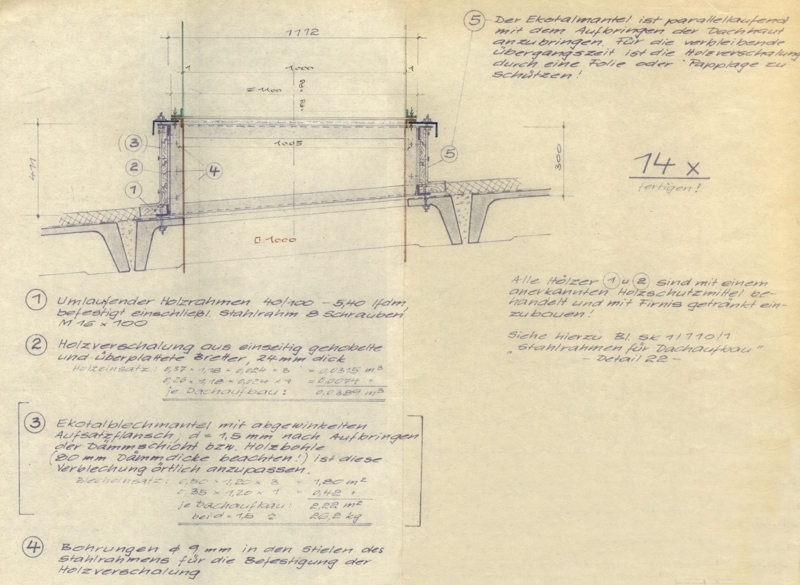 1112
1
1000
1
□ 1100
1005
3
2
4
1
5
411
300
□ 1000
5 Der Ekotalmantel ist parallellaufend
mit dem Aufbringen der Dachhaut
anzubringen. Für die verbleibende
Übergangszeit ist die Holzverschalung
durch eine Folie oder Papplage zu
schützen!
14 x
fertigen!
Alle Hölzer 1 u 2 sind mit einem
anerkannten Holzschutzmittel be-
handelt und mit Firnis getränkt ein-
zubauen!
Siehe hierzu Bl. SK 1/110/1
"Stahlrahmen für Dachaufbau"
- Detail 22 -
1 Umlaufender Holzrahmen 40/100 - 5,40 lfdm,
befestigt einschließl. Stahlrahm 8 Schrauben
M 16 x 100
2 Holzverschalung aus einseitig gehobelte
und überplattete Bretter, 24 mm dick
Holzeinsatz: 0,37 × 1,18 × 0,024 × 3 = 0,0315 m³
0,26 × 1,18 × 0,024 × 1 = 0,0074 "
je Dachaufbau: 0,0389 m³
3 Ekotalblechmantel mit abgewinkelten
Aufsatzflansch, d = 1,5 mm nach Aufbringen
der Dämmschicht bzw. Holzbohle
(80 mm Dämmdicke beachten!) ist diese
Verblechung örtlich anzupassen.
Blecheinsatz: 0,50 × 1,20 × 3 = 1,80 m²
0,35 × 1,20 × 1 = 0,42 "
je Dachaufbau: 2,22 m²
bei d = 1,5 kg
4 Bohrungen ϕ 9 mm in den Stielen des
Stahlrahmens für die Befestigung der
Holzverschalung